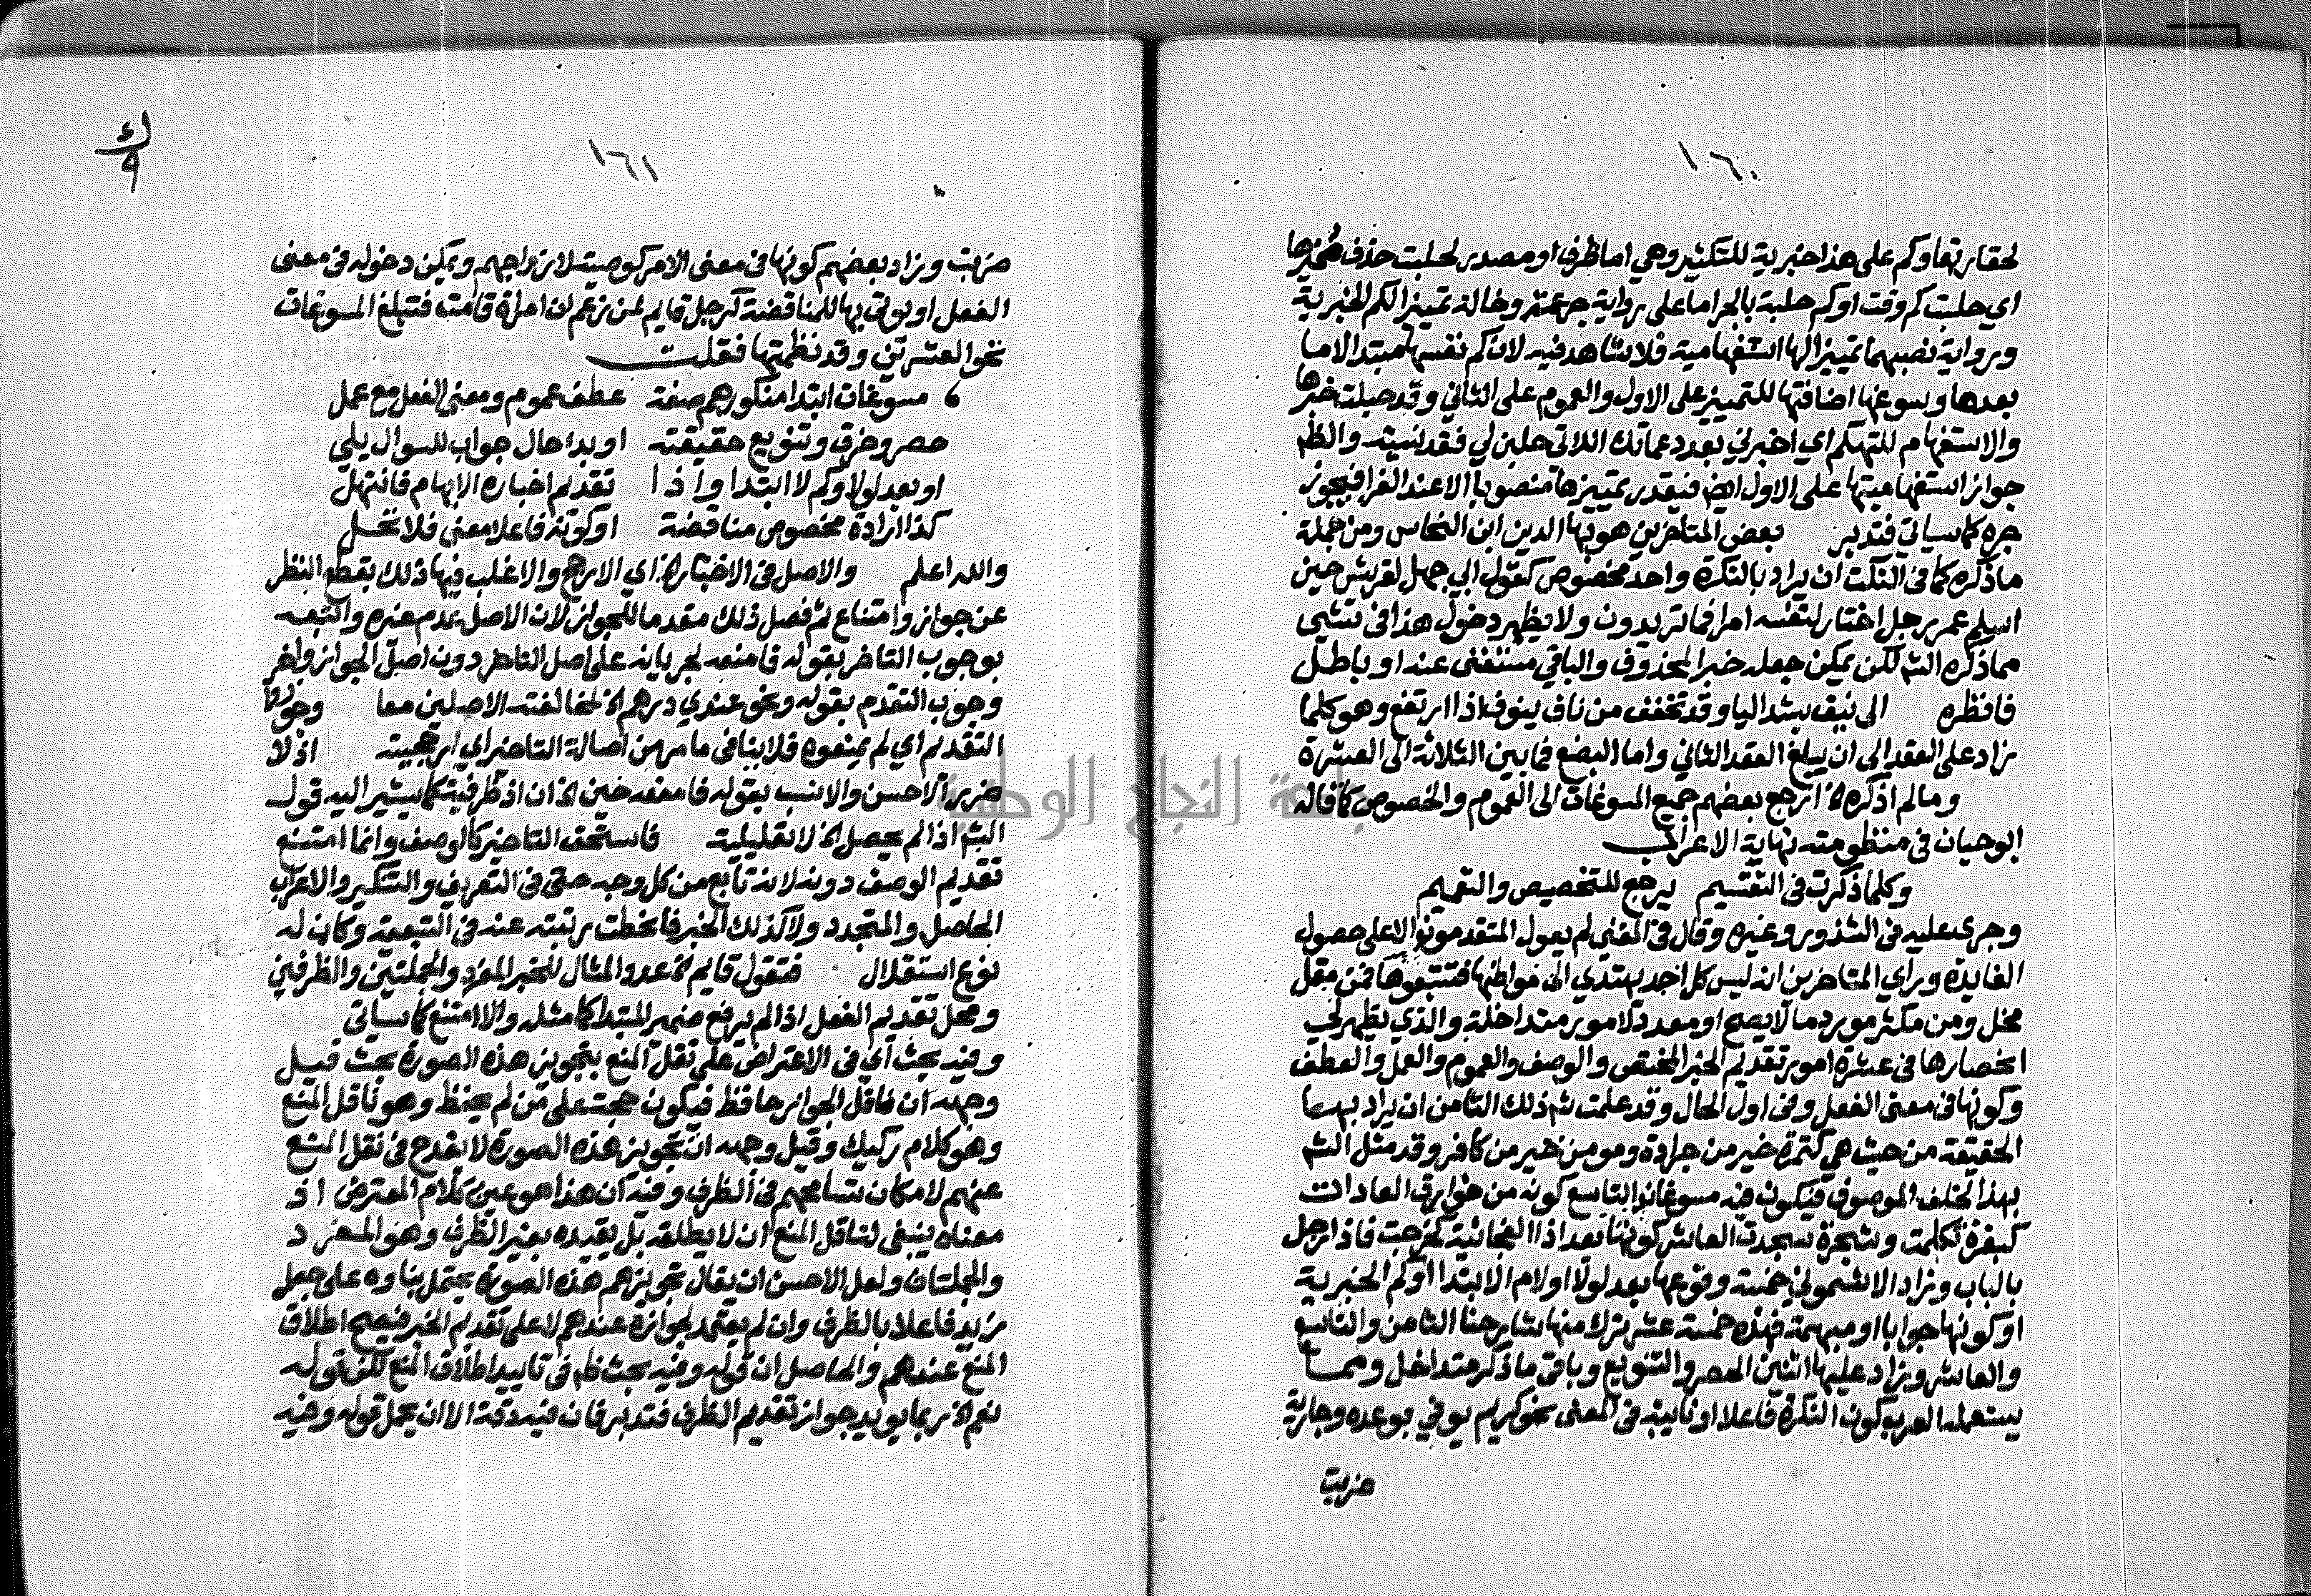 ١٦٠
لحقارتها وكم على هذا خبرية للتكثير وهي اما ظرف او مصدر لحلبت حذف مميزها
اي حلبت كم وقت او كم حلبة بالجر اما على رواية جر عمة وخالة تمييزا لكم الخبرية
ورواية نصبهما تمييزا لها استفهامية فلا شاهد فيه لان كم نفسها مبتدا لا ما
بعدها وسوغها اضافتها للتمييز على الاول والعموم على الثاني وقد حلبت خبرها
والاستفهام للتهكم اي اخبرني بعدد عماتك اللاتي حلبن لي فقد نسيته والظم
جواز استفهاميتها على الاول ايضا فيقدر تمييزها منصوبا الا عند الفرا فيجوز
جره كما سياتي فتدبر بعض المتاخرين هو بها الدين ابن النحاس ومن جملة
ما ذكره كما في النكت ان يراد بالنكرة واحد مخصوص كقول ابي جهل لقريش حين
اسلم عمر رجل اختار لنفسه امرا فما تريدون ولا يظهر دخول هذا في شي
مما ذكره الش لكن يمكن جعله خبر المحذوف والباقي مستغنى عنه او باطل
فانظره الى نيف بشد اليا وقد تخفف من ناف ينوف اذا ارتفع وهو كلما
زاد على العقد الى ان يبلغ العقد الثاني واما البضع فما بين الثلاثة الى العشرة
وما لم اذكره الخ ارجع بعضهم جميع المسوغات الى العموم والخصوص كما قاله
ابو حيان في منظومته نهاية الاعراب
وكلما ذكرت في التقسيم يرجع للتخصيص والتعميم
وجرى عليه في الشذور وغيره وقال في المغني لم يعول المتقدمون الا على حصول
الفايدة وراي المتاخرين انه ليس كل احد يهتدي الى مواطنها فتتبعوها فمن مقل
مخل ومن مكثر مورد ما لا يصح او معدد لامور متداخلة والذي يظهر لي
انحصارها في عشرة امور تقديم الخبر المختص والوصف والعموم والعمل والعطف
وكونها في معنى الفعل وفي اول الحال وقد علمت من ذلك الثامن ان يراد بها
الحقيقة من حيث هي كتمرة خير من جرادة ومومن خير من كافر وقد مثل الش
بهذا لخلف الموصوف فيكون فيه مسوغان التاسع كونه من خوارق العادات
كبقرة تكلمت وشجرة سجدت العاشر كونها بعد اذا الفجائية كخرجت فاذا رجل
بالباب وزاد الاشموني خمسة وقوعها بعد لولا او لام الابتدا او كم الخبرية
او كونها جوابا او مبهمة فهذه خمسة عشر ترك منها شارحنا الثامن والتاسع
والعاشر وزاد عليها اثنين الحصر والتنويع وباقي ما ذكر متداخل ومما
يستعمله العرب كون النكرة فاعلا او نايبه في المعنى نحو كريم يوفي بوعده وجارية
ضربت
١٦١
ضربت وزاد بعضهم كونها في معنى الامر كوصية لازواجهم ويمكن دخوله في معنى
الفعل او يوتى بها للمناقضة كرجل قايم لمن زعم ان امراة قامت فتبلغ المسوغات
نحو العشرين وقد نظمتها فقلت
مسوغات ابتدا منكورهم صفة عطف عموم ومعنى الفعل مع عمل
حصر وخرق وتنويع حقيقته او بدا حال جواب للسوال يلي
او بعد لولا وكم لا ابتدا واذا تقديم اخباره الابهام فانتهل
كذا ارادة مخصوص مناقضة او كونه فاعلا معنى فلا تحل
والله اعلم والاصل في الاخبار الخ اي الارجح والاغلب فيها ذلك بقطع النظر
عن جواز وامتناع ثم فصل ذلك مقدما للجواز لان الاصل عدم غيره واتبعه
بوجوب التاخر بقوله فامنعه لجريانه على اصل التاخر دون اصل الجواز واخر
وجوب التقدم بقوله ونحو عندي درهم الخ لمخالفته الاصلين معا وجوزوا
التقديم اي لم يمنعوه فلا ينافي ما مر من اصالة التاخير اي ارجحيته اذ لا
ضررا الاحسن والانسب بقوله فامنعه حين الخ ان اذ ظرفية كما يشير اليه قول
الش اذا لم يحصل الخ لا تعليلية فاستحق التاخير كالوصف وانما امتنع
تقديم الوصف دونه لانه تابع من كل وجه حتى في التعريف والتنكير والاعراب
الحاصل والمتجدد ولا كذلك الخبر فانحطت رتبته عنه في التبعية وكان له
نوع استقلال فتقول قايم الخ عدد المثال للخبر المفرد والجملتين والظرفين
ومحل تقديم الفعل اذا لم يرفع ضمير المبتدا كما مثله والا امتنع كما سياتي
وفيه بحث اي في الاعتراض على نقل المنع بتجويز هذه الصورة بحث قيل
وجهه ان ناقل الجواز حافظ فيكون حجة على من لم يحفظ وهو ناقل المنع
وهو كلام ركيك وقيل وجهه ان تجويز هذه الصورة لا يقدح في نقل المنع
عنهم لامكان تسامحهم في الظرف وفيه ان هذا هو عين كلام المعترض اذ
معناه ينبغي لناقل المنع ان لا يطلقه بل يقيده بغير الظرف وهو المفرد
والجملتان ولعل الاحسن ان يقال تجويزهم هذه الصورة يحتمل بناوه على جعل
زيد فاعلا بالظرف وان لم يعتمد لجوازه عندهم لا على تقديم الخبر فيصح اطلاق
المنع عندهم والحاصل ان قوله وفيه بحث ظم في تاييد اطلاق المنع لكن قوله
نعم الخ ربما يويد جواز تقديم الظرف فتدبر فان فيه دقة الا ان يحمل قوله وفيه
جامعة النجاح الوطنية